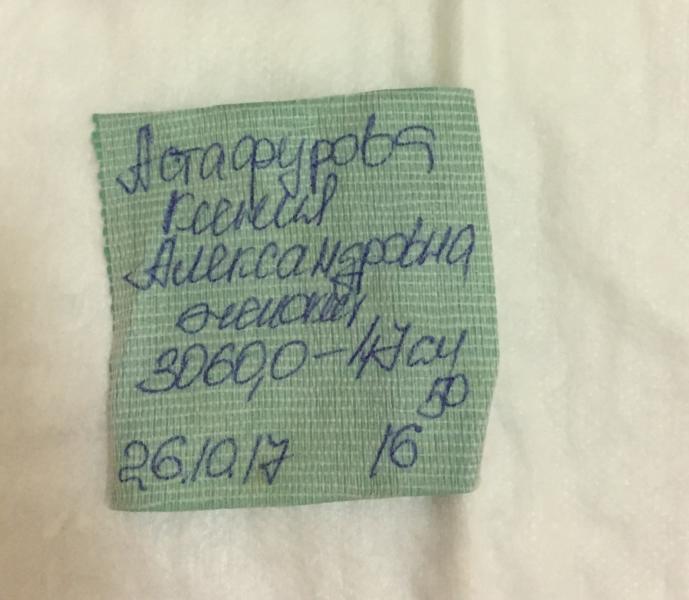 Астафурова
Ксения
Александровна
женский
3060,0-47см
26.10.17 16 50